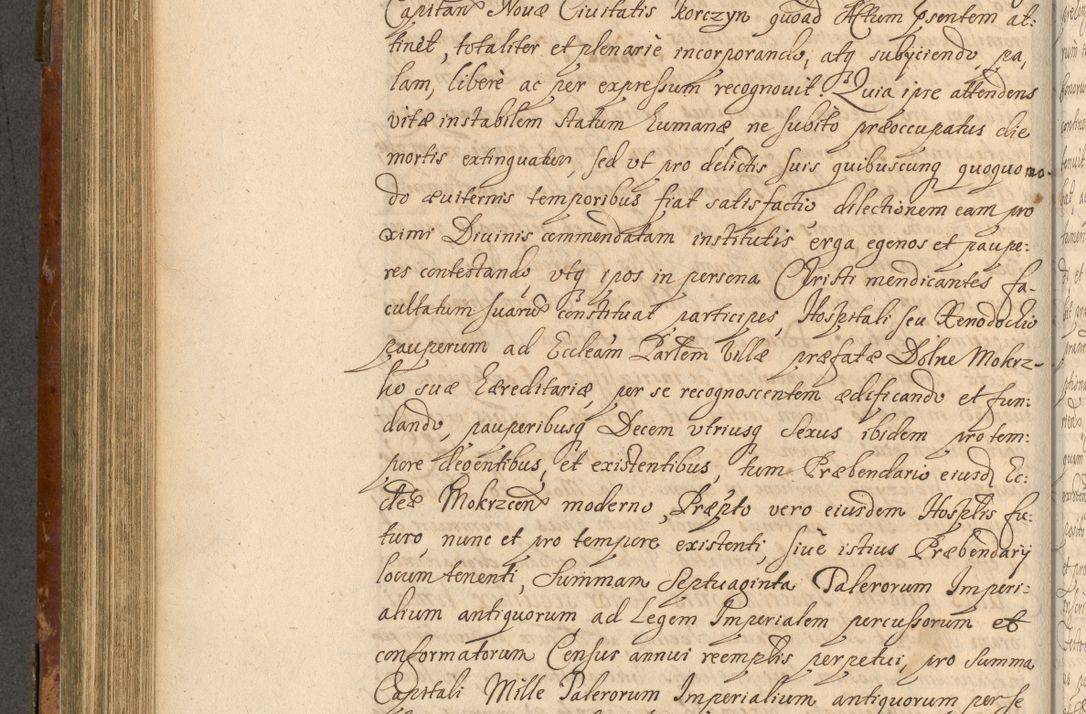 Capitan Nouæ Ciuitatis Korczyn quoad Actum psentem at:
tinet, totaliter et plenarie incorporando, atq subyciendo, pa,
lam, liberè ac per expressum recognouit. Quia ipse attendens
vitæ instabilem statum humanæ ne subito præoccupatus die
mortis extinguatur, sed vt pro delictis suis quibuscunq quoquo mo-
do æuiternis temporibus fiat satisfactio dilectionem eam pro
ximi Diuinis commendatam institutis erga egenos et paupe:
res contestando, vtq ipos in persona Christi mendicantes fa-
cultatum suarū constituat participes, Hospitali seu Xenodochio
pauperum ad Eccleam Partem Villæ præfatæ Dolne Mokrz-
ko suæ hæreditariæ, per se recognoscentem ædificando et fun:
dando, pauperibusq Decem vtriusq Sexus ibidem pro tem:
pore degentibus, et existentibus, tum Præbendario eiusd Ec:
cleæ Mokrzcen moderno, Præpto vero eiusdem Hosplis fu:
turo, nunc et pro tempore existenti, siue istius Præbendary
locum tenenti, Summam Septuaginta Talerorum Imperi:
alium antiquorum ad Legem Imperialem percussorum et
conformatorum Census annui reemplis perpetui, pro Summa
Capitali Mille Talerorum Imperialium antiquorum per se